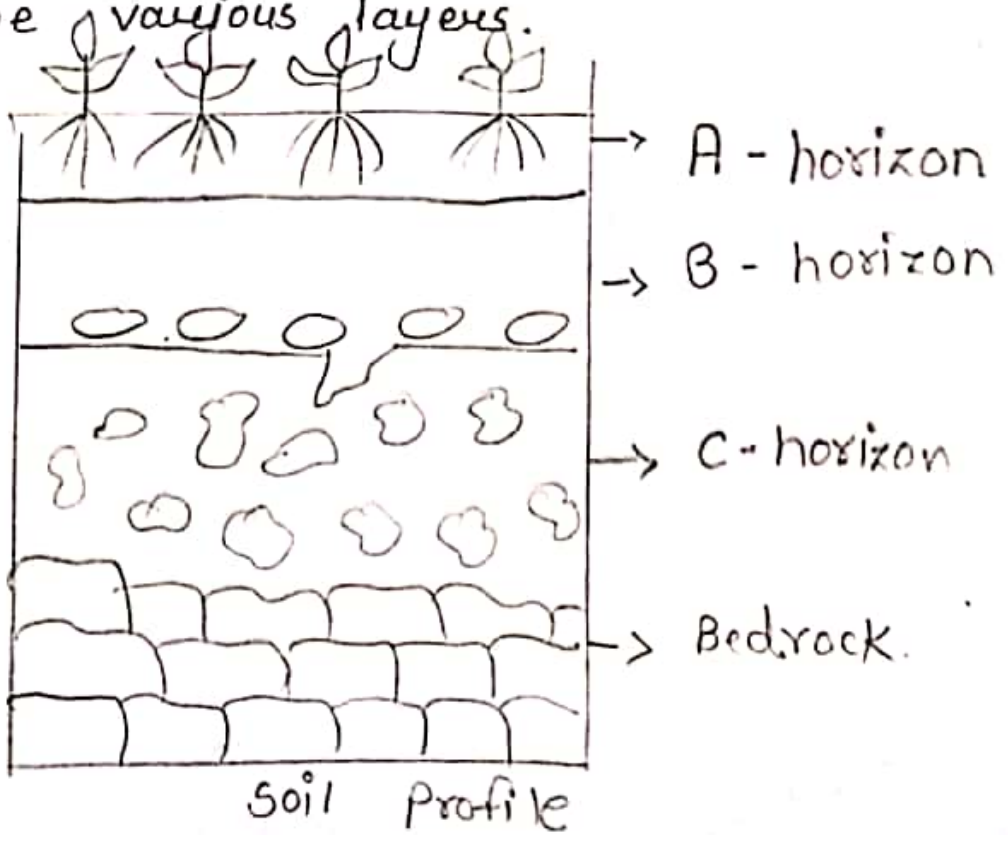 e various layers.
A - horizon
B - horizon
C - horizon
Bedrock.
Soil Profile